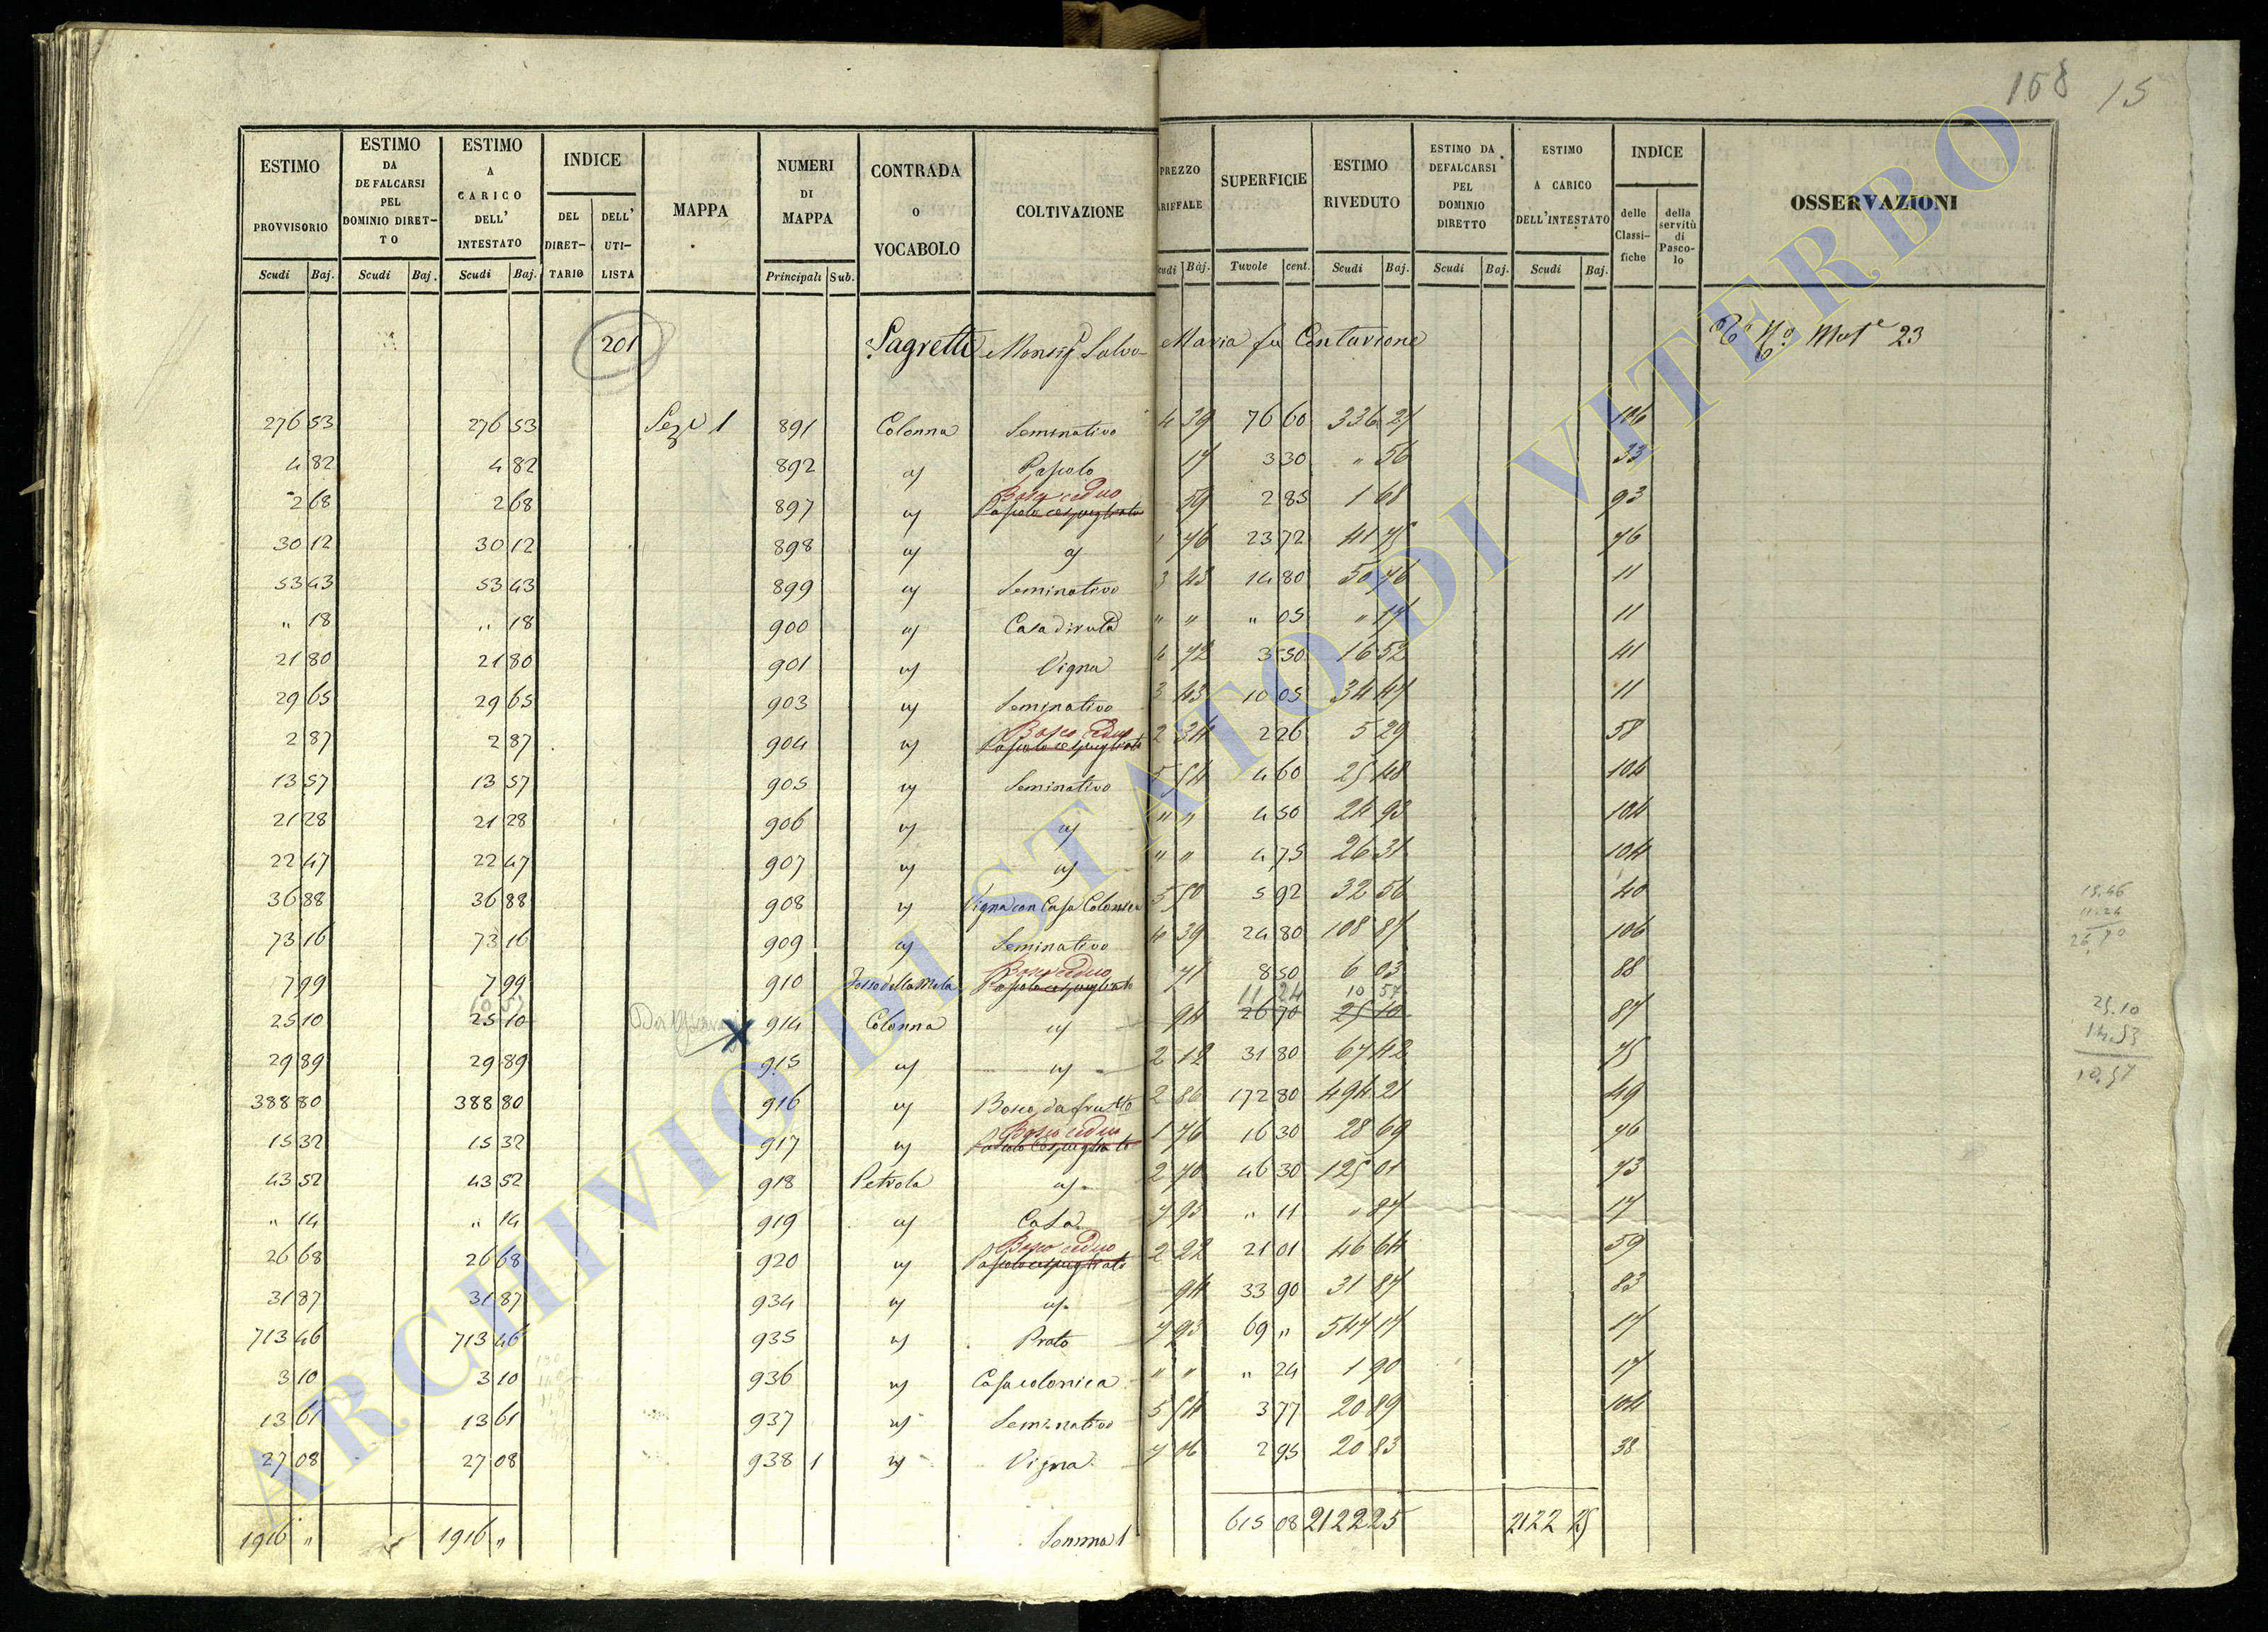 168 15
ESTIMO PROVVISORIO | ESTIMO DA DEFALCARSI PEL DOMINIO DIRETTO | ESTIMO A CARICO DELL' INTESTATO | INDICE | MAPPA | NUMERI DI MAPPA | CONTRADA O VOCABOLO | COLTIVAZIONE | PREZZO TARIFFALE | SUPERFICIE | ESTIMO RIVEDUTO | ESTIMO DA DEFALCARSI PEL DOMINIO DIRETTO | ESTIMO A CARICO DELL'INTESTATO | INDICE | OSSERVAZIONI
DEL DIRETTARIO | DELL' UTILISTA | delle Classifiche | della servitù di Pascolo
Scudi | Baj. | Scudi | Baj. | Scudi | Baj. | Principali | Sub. | Scudi | Baj. | Tavole | cent. | Scudi | Baj. | Scudi | Baj. | Scudi | Baj.
201 Sagretti Monsig. Salvo Maria fu Centurione 23
276 53 | 276 53 | Sez. 1 | 891 | Colonna | Seminativo | 4 39 | 76 60 | 336 27 | 106
4 82 | 4 82 | 892 | " | Pascolo | 17 | 3 30 | " 56 | 33
2 68 | 2 68 | 897 | " | Bosco ceduo Pascolo cespugliato | 59 | 2 85 | 1 68 | 93
30 12 | 30 12 | 898 | " | " | 1 76 | 23 72 | 41 75 | 76
53 43 | 53 43 | 899 | " | Seminativo | 3 43 | 14 80 | 50 76 | 11
" 18 | " 18 | 900 | " | Casa diruta | " " | " 05 | " 17 | 11
21 80 | 21 80 | 901 | " | Vigna | 4 72 | 3 50 | 16 52 | 41
29 65 | 29 65 | 903 | " | Seminativo | 3 43 | 10 05 | 34 47 | 11
2 87 | 2 87 | 904 | " | Bosco ceduo Pascolo cespugliato | 2 34 | 2 26 | 5 29 | 58
13 57 | 13 57 | 905 | " | Seminativo | 5 54 | 4 60 | 25 48 | 104
21 28 | 21 28 | 906 | " | " | " " | 4 50 | 24 93 | 104
22 47 | 22 47 | 907 | " | " | " " | 4 75 | 26 31 | 104
36 88 | 36 88 | 908 | " | Vigna con Casa Colonica | 5 50 | 5 92 | 32 56 | 40
73 16 | 73 16 | 909 | " | Seminativo | 4 39 | 24 80 | 108 87 | 106
7 99 | 7 99 | 910 | Fosso della Mola | Bosco ceduo Pascolo cespugliato | 71 | 8 50 | 6 03 | 88
11 24 | 10 57
25 10 | 25 10 | 914 | Colonna | " | 94 | 26 70 | 25 10 | 87
29 89 | 29 89 | 915 | " | " | 2 12 | 31 80 | 67 42 | 75
388 80 | 388 80 | 916 | " | Bosco da frutto | 2 86 | 172 80 | 494 21 | 49
15 32 | 15 32 | 917 | " | Bosco ceduo Pascolo Cespugliato | 1 76 | 16 30 | 28 69 | 76
43 52 | 43 52 | 918 | Petrola | " | 2 70 | 46 30 | 125 01 | 73
" 14 | " 14 | 919 | " | Casa | 7 93 | " 11 | " 87 | 17
26 68 | 26 68 | 920 | " | Bosco ceduo Pascolo cespugliato | 2 22 | 21 01 | 46 64 | 59
31 87 | 31 87 | 934 | " | " | 94 | 33 90 | 31 87 | 83
713 46 | 713 46 | 935 | " | Prato | 7 93 | 69 " | 547 17 | 17
3 10 | 3 10 | 936 | " | Casa colonica | " " | " 24 | 1 90 | 17
13 61 | 13 61 | 937 | " | Seminativo | 5 54 | 3 77 | 20 89 | 104
27 08 | 27 08 | 938 | 1 | " | Vigna | 7 06 | 2 95 | 20 83 | 38
1916 " | 1916 " | Somma 1 | 615 08 | 2122 25 | 2122 25
15.46
11.24
26,70
25.10
14.53
10.57
ARCHIVIO DI STATO DI VITERBO